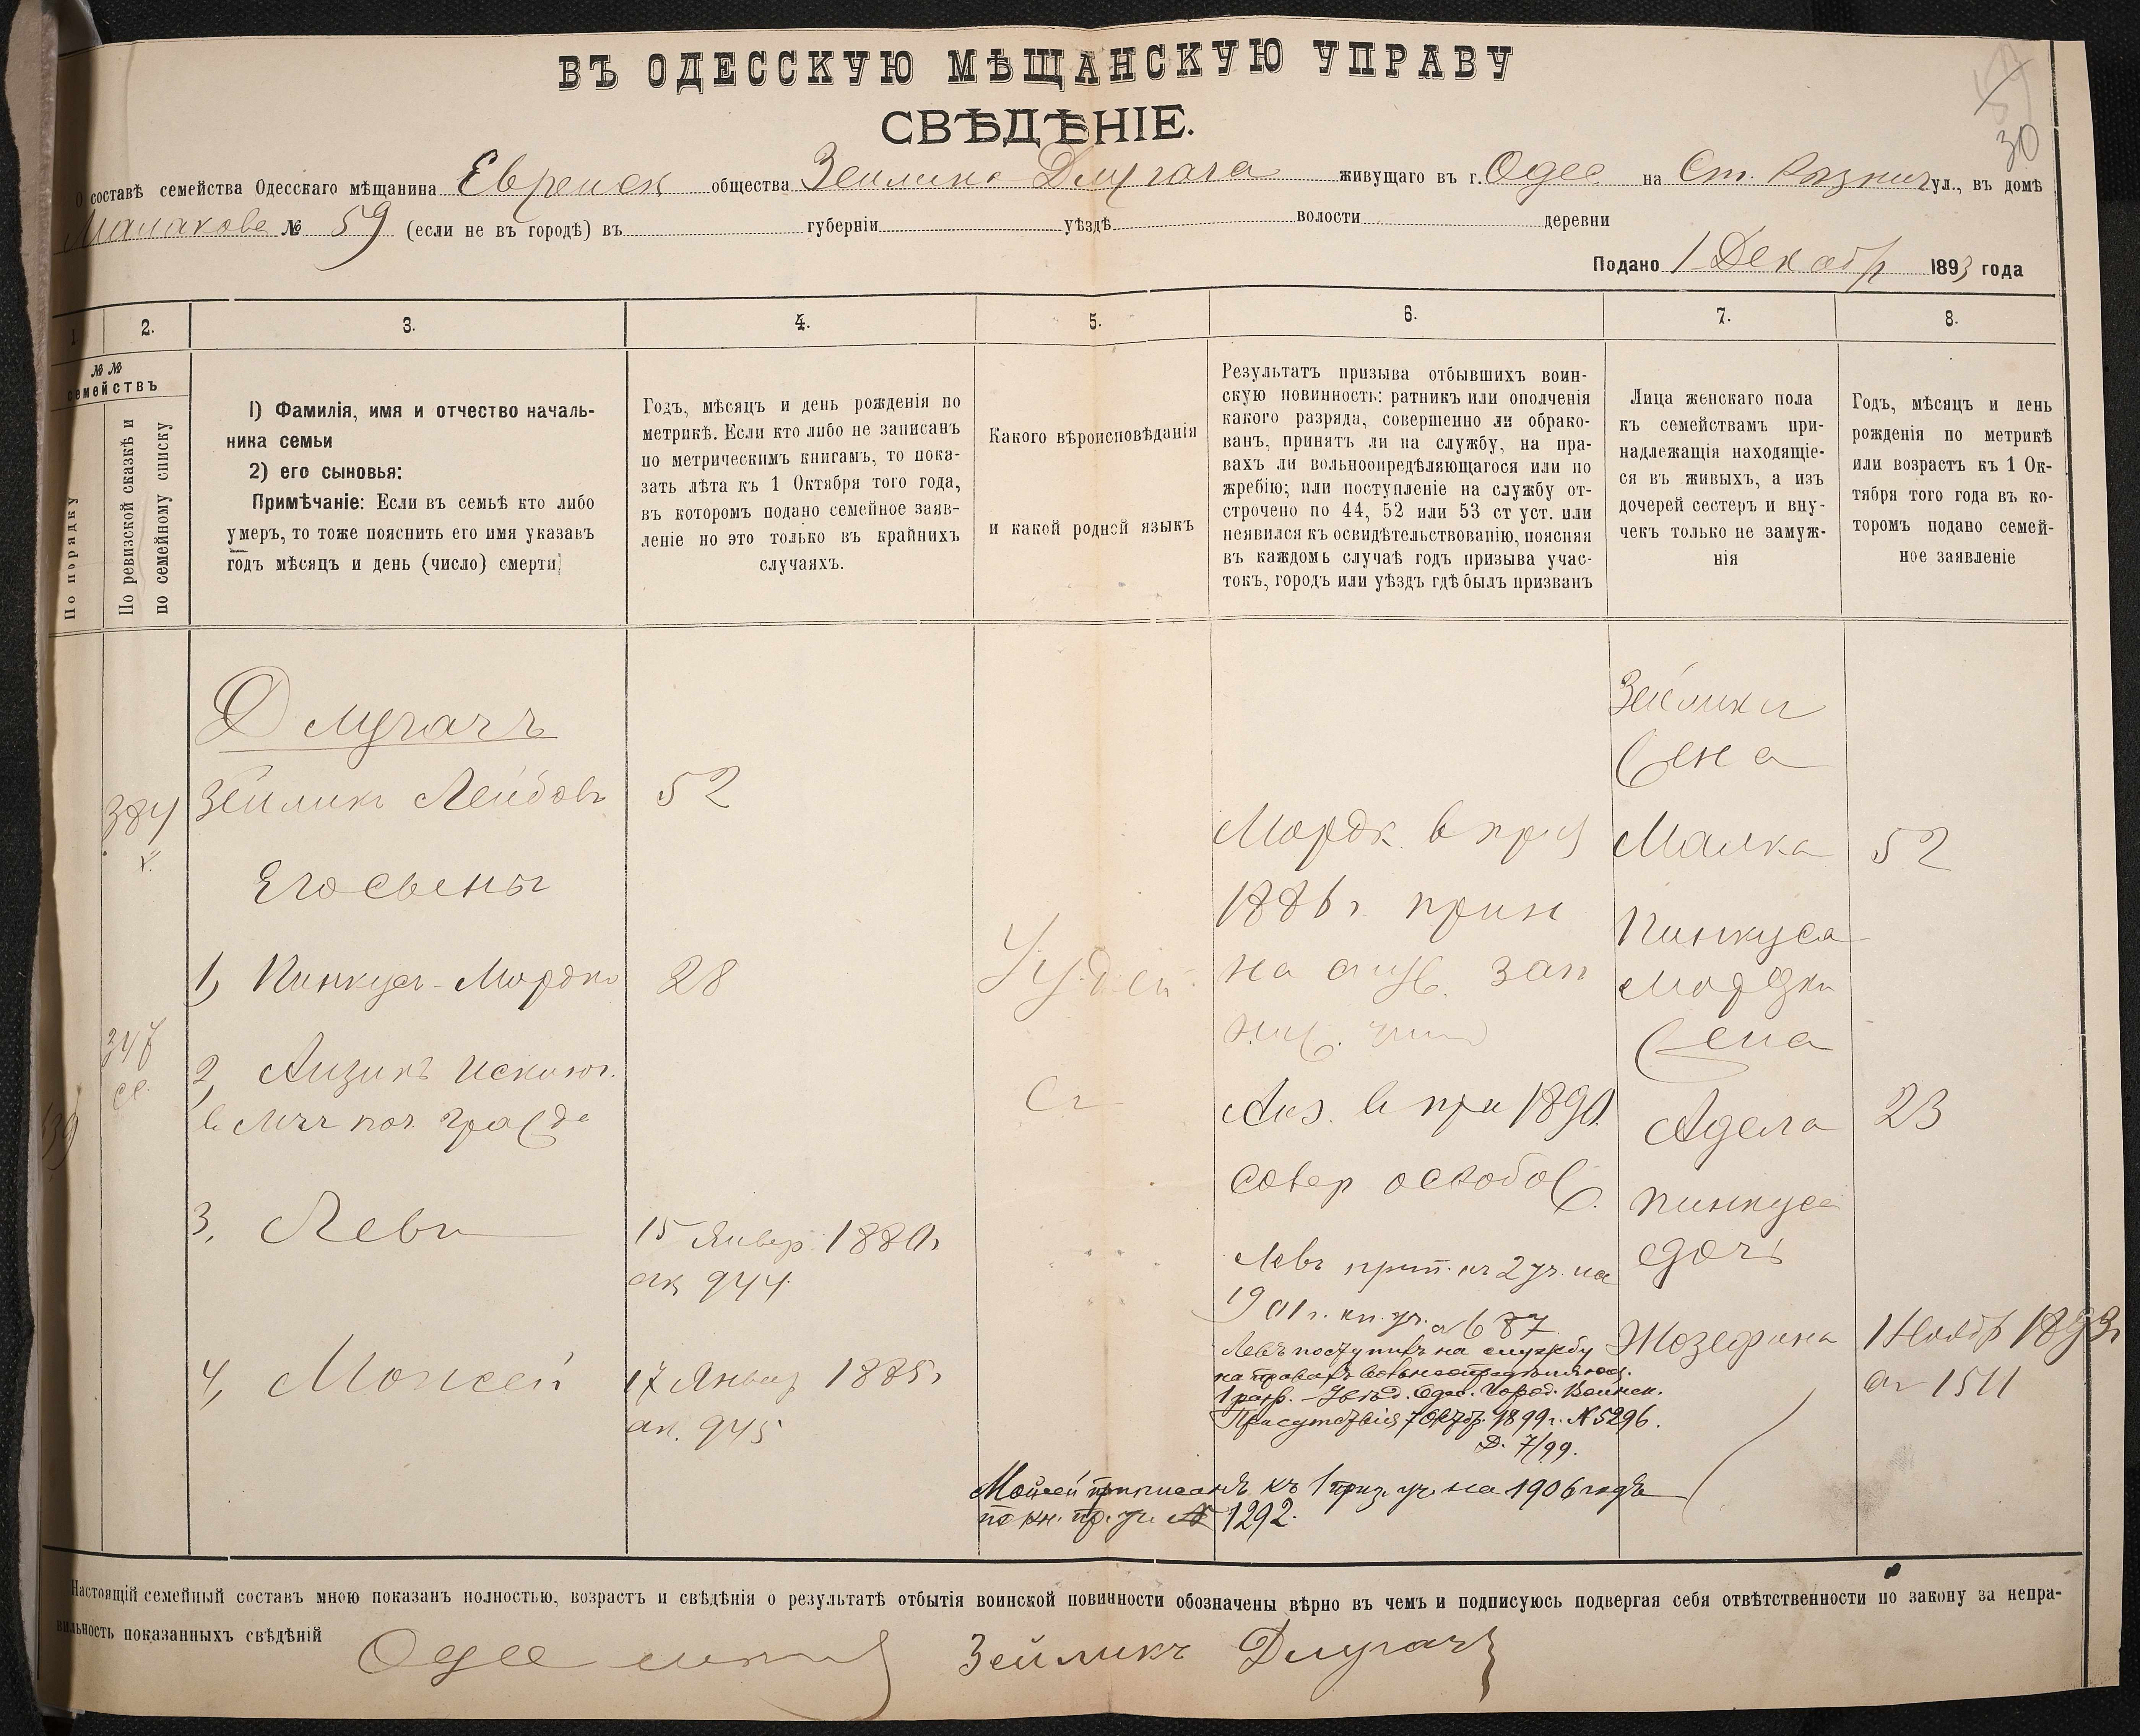 ВЪ ОДЕССКУЮ МѢЩАНСКУЮ УПРАВУ
СВѢДѢНІЕ.
30
О составѣ семейства Одесскаго мѣщанина Евреиск общества Зейлика Длугача живущаго въ г. Одес на Ст. Рѣзнич ул., въ домѣ
Малакова № 59 (если не въ городѣ) въ губерніи уѣздѣ волости деревни
Подано 1 Декабр 1893 года
1 2. 3. 4. 5. 6. 7. 8.
№№ семействъ
По порядку
По ревизской сказкѣ и
по семейному списку
1) Фамилія, имя и отчество началь-
ника семьи
2) его сыновья:
Примѣчаніе: Если въ семьѣ кто либо
умеръ, то тоже пояснить его имя указавъ
годъ мѣсяцъ и день (число) смерти
Годъ, мѣсяцъ и день рожденія по
метрикѣ. Если кто либо не записанъ
по метрическимъ книгамъ, то пока-
зать лѣта къ 1 Октября того года,
въ которомъ подано семейное заяв-
леніе но это только въ крайнихъ
случаяхъ.
Какого вѣроисповѣданія
и какой родной языкъ
Результатъ призыва отбывшихъ воин-
скую повинность: ратникъ или ополченія
какого разряда, совершенно ли обрако-
ванъ, принятъ ли на службу, на пра-
вахъ ли вольноопредѣляющагося или по
жребію; или поступленіе на службу от-
строчено по 44, 52 или 53 ст уст. или
неявился къ освидѣтельствованію, поясняя
въ каждомъ случаѣ годъ призыва учас-
токъ, городъ или уѣздъ гдѣ былъ призванъ
Лица женскаго пола
къ семействамъ при-
надлежащія находящіе-
ся въ живыхъ, а изъ
дочерей сестеръ и вну-
чекъ только не замуж-
нія
Годъ, мѣсяцъ и день
рожденія по метрикѣ
или возрастъ къ 1 Ок-
тября того года въ ко-
торомъ подано семей-
ное заявленіе
Длугачъ
Зейликъ Лейбовъ 52
Его сыены
1, Пинкусъ-Мордко 28
2, Аизикъ исключ.
3, Левъ
15 Январ. 1880г
ак 944
4, Моисей
17 Январ 1885г
ак. 945
Іудей
Мордк. в приз
1886г. прин
на служ. зап
Аиз. в при 1890.
совер освобож.
Левъ прип. къ 2 уч. на
1901г. кн. уч. № 687
Левъ поступилъ на службу
на правахъ вольноопредѣляющ.
1 разр. – Увѣд. Одес. Город. Воинск.
Присутствія 7 Октбр. 1899 г. № 5296.
Д. 7/99.
Мойсей приписанъ къ 1 приз. уч. на 1906 годъ
по кн. пр. уч. № 1292.
Зейлика
жена
Малка 52
Пинкуса
Мордки
жена
Адела 23
пинкуса
дочь
Жозефина 1 Ноябр 1893г
ак 1511
Настоящій семейный составъ мною показанъ полностью, возрастъ и свѣдѣнія о результатѣ отбытія воинской повинности обозначены вѣрно въ чемъ и подписуюсь подвергая себя отвѣтственности по закону за непра-
вильность показанныхъ свѣдѣній
Зейликъ Длугачъ